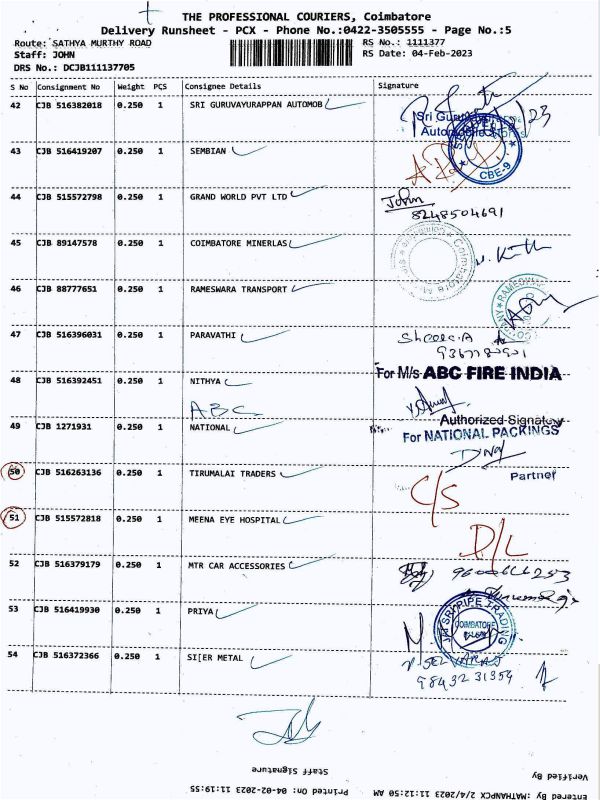 THE PROFESSIONAL COURIERS, Coimbatore
Delivery Runsheet - PCX - Phone No.:0422-3505555 - Page No.:5
Route: SATHYA MURTHY ROAD RS No.: 1111377
Staff: JOHN RS Date: 04-Feb-2023
DRS No.: DCJB111137705
S No Consignment No Weight PCS Consignee Details Signature
42 CJB 516382018 0.250 1 SRI GURUVAYURAPPAN AUTOMOB
43 CJB 516419207 0.250 1 SEMBIAN
CBE-9
44 CJB 515572798 0.250 1 GRAND WORLD PVT LTD John
8248504691
45 CJB 89147578 0.250 1 COIMBATORE MINERLAS
46 CJB 88777651 0.250 1 RAMESWARA TRANSPORT
47 CJB 516396031 0.250 1 PARAVATHI
For M/s ABC FIRE INDIA
48 CJB 516392451 0.250 1 NITHYA
ABC
Authorized Signatory
49 CJB 1271931 0.250 1 NATIONAL For NATIONAL PACKINGS
Partner
50 CJB 516263136 0.250 1 TIRUMALAI TRADERS C/S
51 CJB 515572818 0.250 1 MEENA EYE HOSPITAL D/L
52 CJB 516379179 0.250 1 MTR CAR ACCESSORIES
53 CJB 516419930 0.250 1 PRIYA
COIMBATORE
54 CJB 516372366 0.250 1 SI[ER METAL
98432 31354
Staff Signature
Verified By
Printed On: 04-02-2023 11:19:55
Entered By :MATHANPCX 2/4/2023 11:12:50 AM